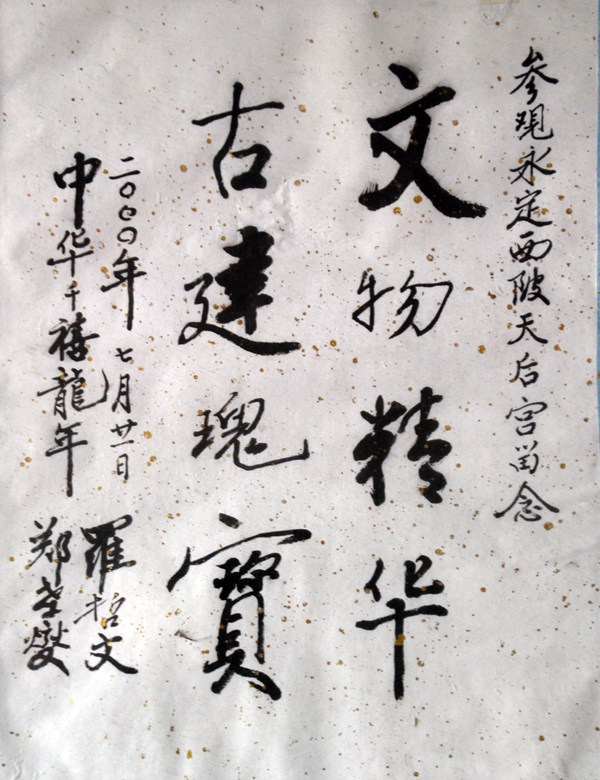 参观永定西陂天后宫留念
文物精华
古建瑰寶
二〇〇〇年七月廿一日
中华千禧龍年
羅哲文
郑孝燮